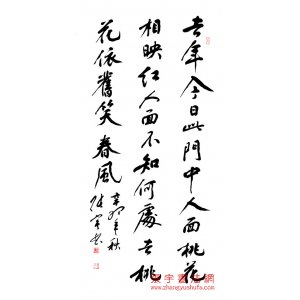 去年今日此門中人面桃花
相映红人面不知何處去桃
花依舊笑春風
辛卯年秋
张宇书
张宇書法網
www.zhangyushufa.com